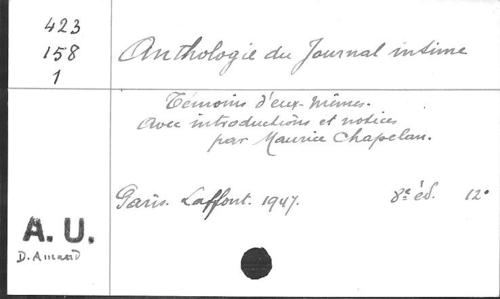 423
158
1
Anthologie du Journal intime
Témoins d'eux-mêmes.
Avec introductions et notices
par Maurice Chapelan.
Paris. Laffont. 1947. 8e éd. 12°
A. U.
D. Amand